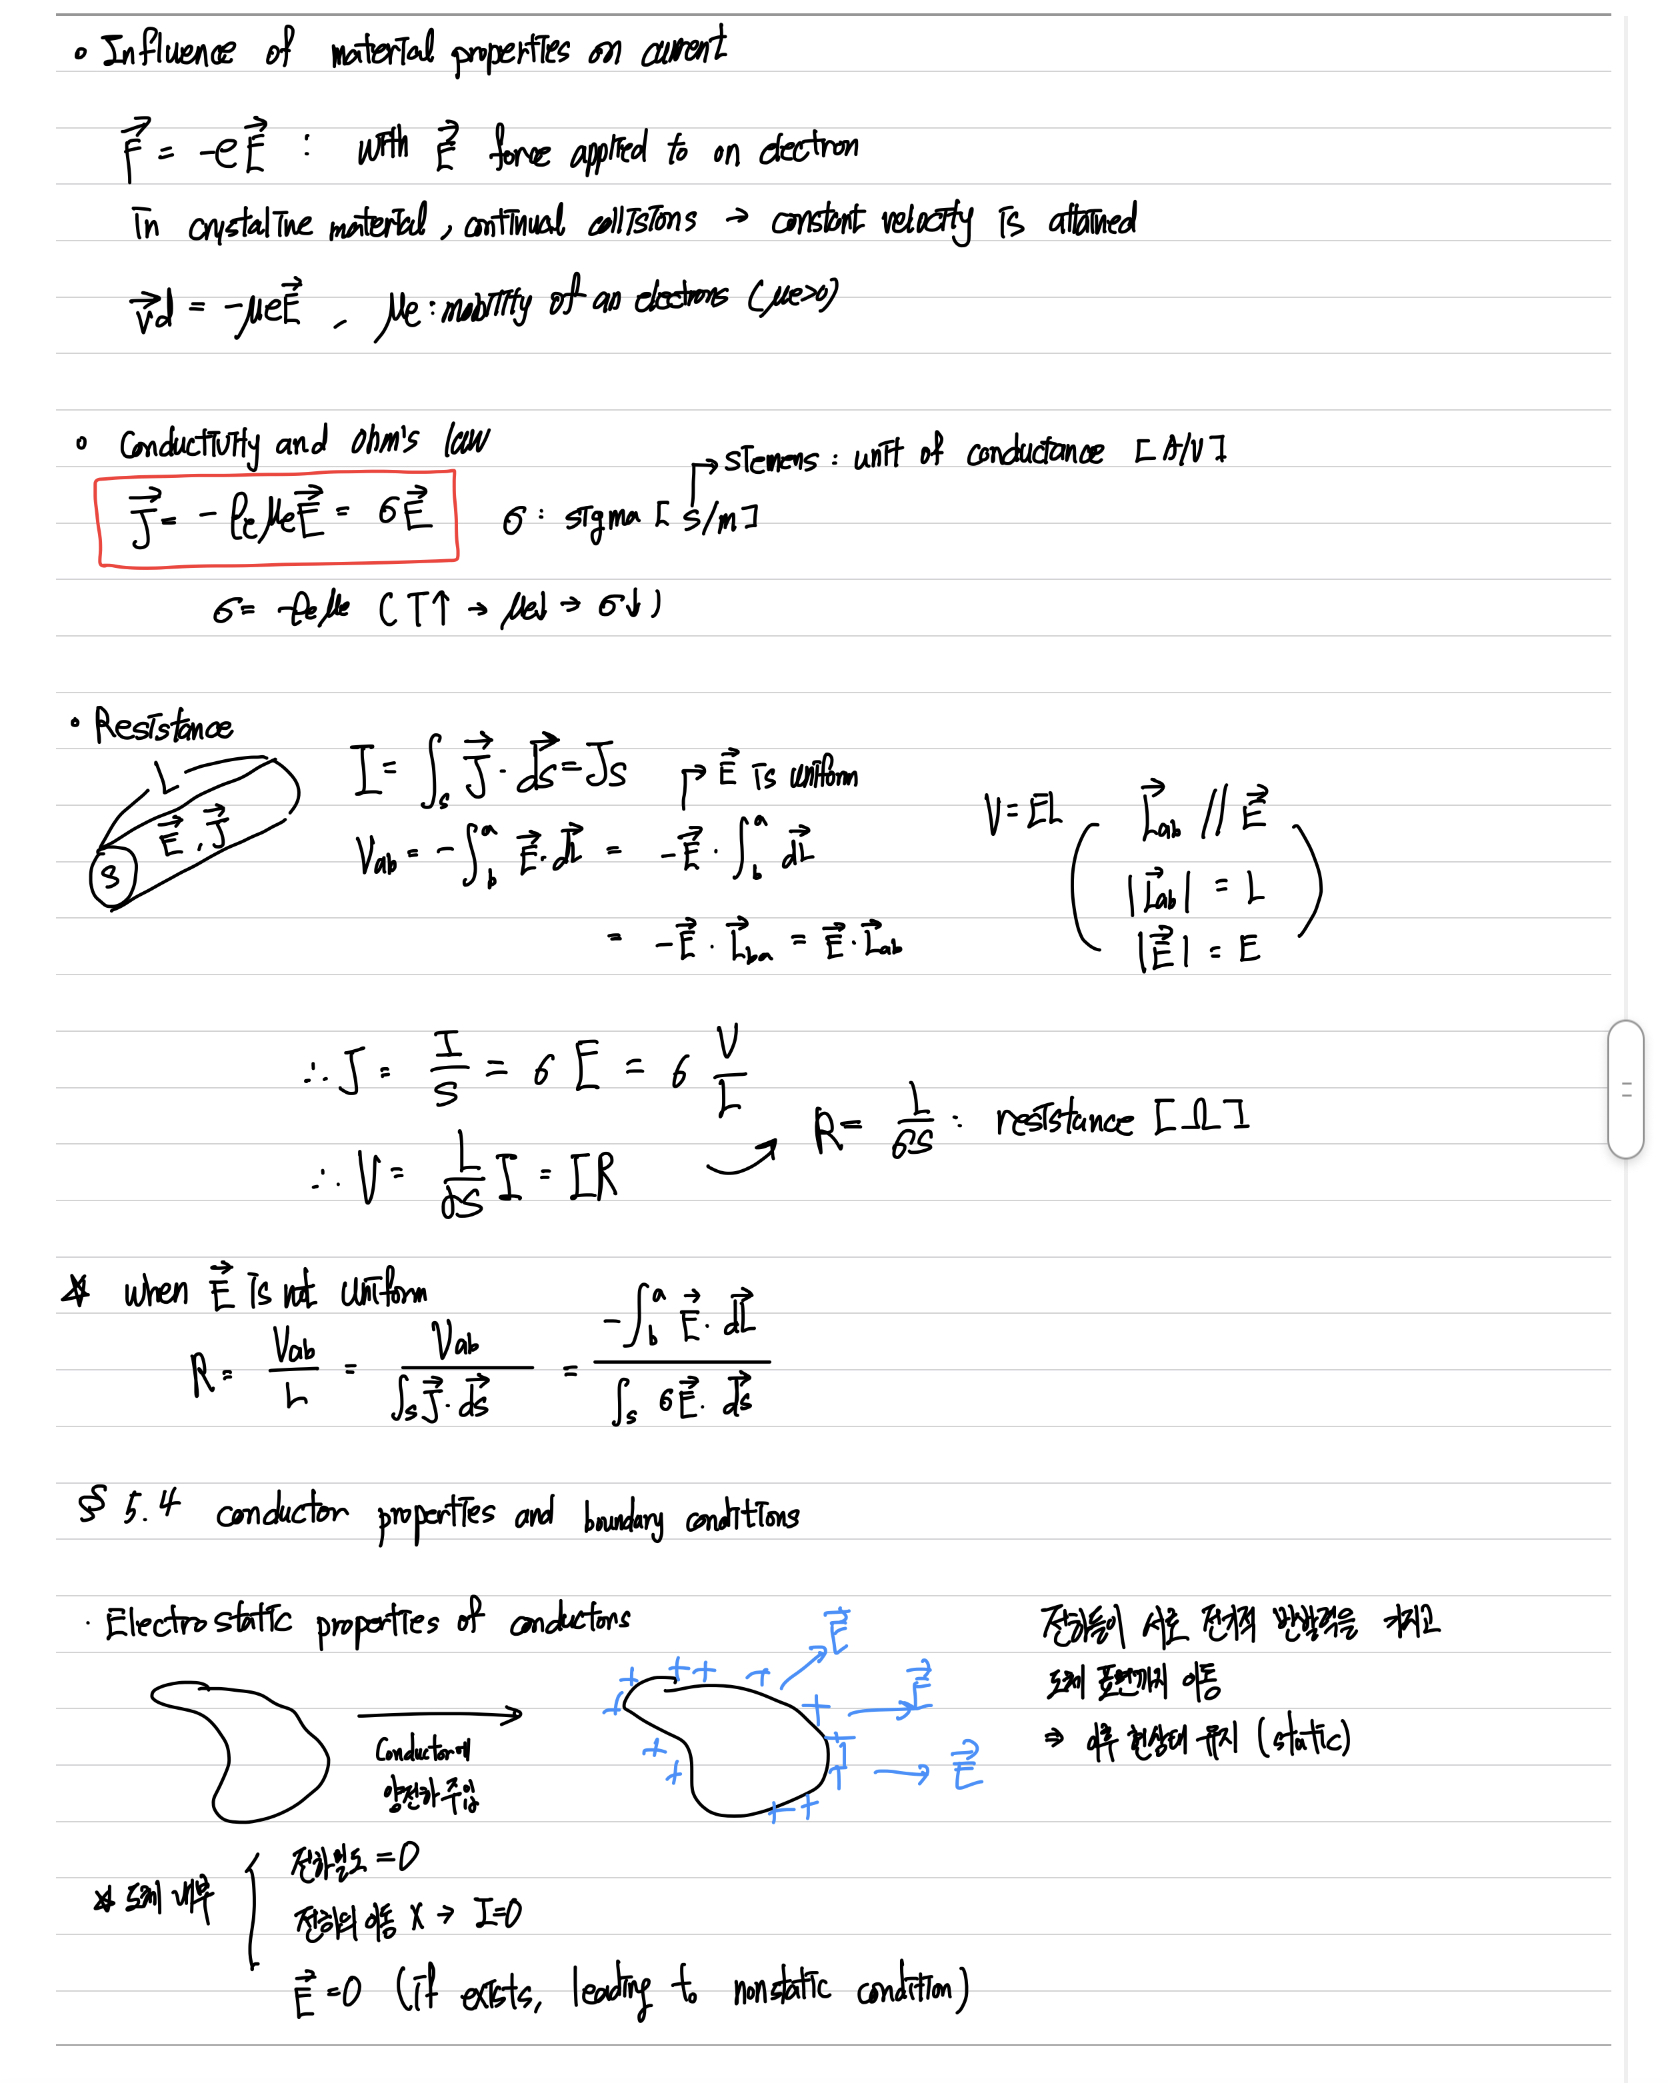 ∘ Influence of material properties on current
F⃗ = -eE⃗ : with E⃗ force applied to on electron
in crystalline material, continual collisions → constant velocity is attained
v⃗d = -μeE⃗ , μe : mobility of an electrons (μe>0)
∘ Conductivity and ohm's law
siemens : unit of conductance [A/V]
J⃗ = -ρeμeE⃗ = σE⃗ σ : sigma [S/m]
σ = -ρeμe (T↑ → μe↓ → σ↓)
• Resistance
L
E⃗, J⃗
S
I = ∫s J⃗ · ds⃗ = JS
E⃗ is uniform
Vab = -∫_b^a E⃗ · dL⃗ = -E⃗ · ∫_b^a dL⃗
= -E⃗ · L⃗ba = E⃗ · L⃗ab
V = EL ( L⃗ab // E⃗
|L⃗ab| = L
|E⃗| = E )
∴ J = I/S = σ E = σ V/L
∴ V = L/σS I = IR → R = L/σS : resistance [Ω]
☆ when E⃗ is not uniform
R = Vab/I = Vab / ∫s J⃗ · ds⃗ = -∫_b^a E⃗ · dL⃗ / ∫s σE⃗ · ds⃗
§ 5.4 conductor properties and boundary conditions
· Electrostatic properties of conductors
Conductor에
양전하 주입
+ + + + + + + + + + + +
E⃗
E⃗
E⃗
전하들이 서로 전기적 반발력을 가지고
도체 표면까지 이동
⇒ 이후 현상태 유지 (static)
☆ 도체 내부
전하밀도 = 0
전하의 이동 X → I=0
E⃗ = 0 (if exists, leading to nonstatic condition)